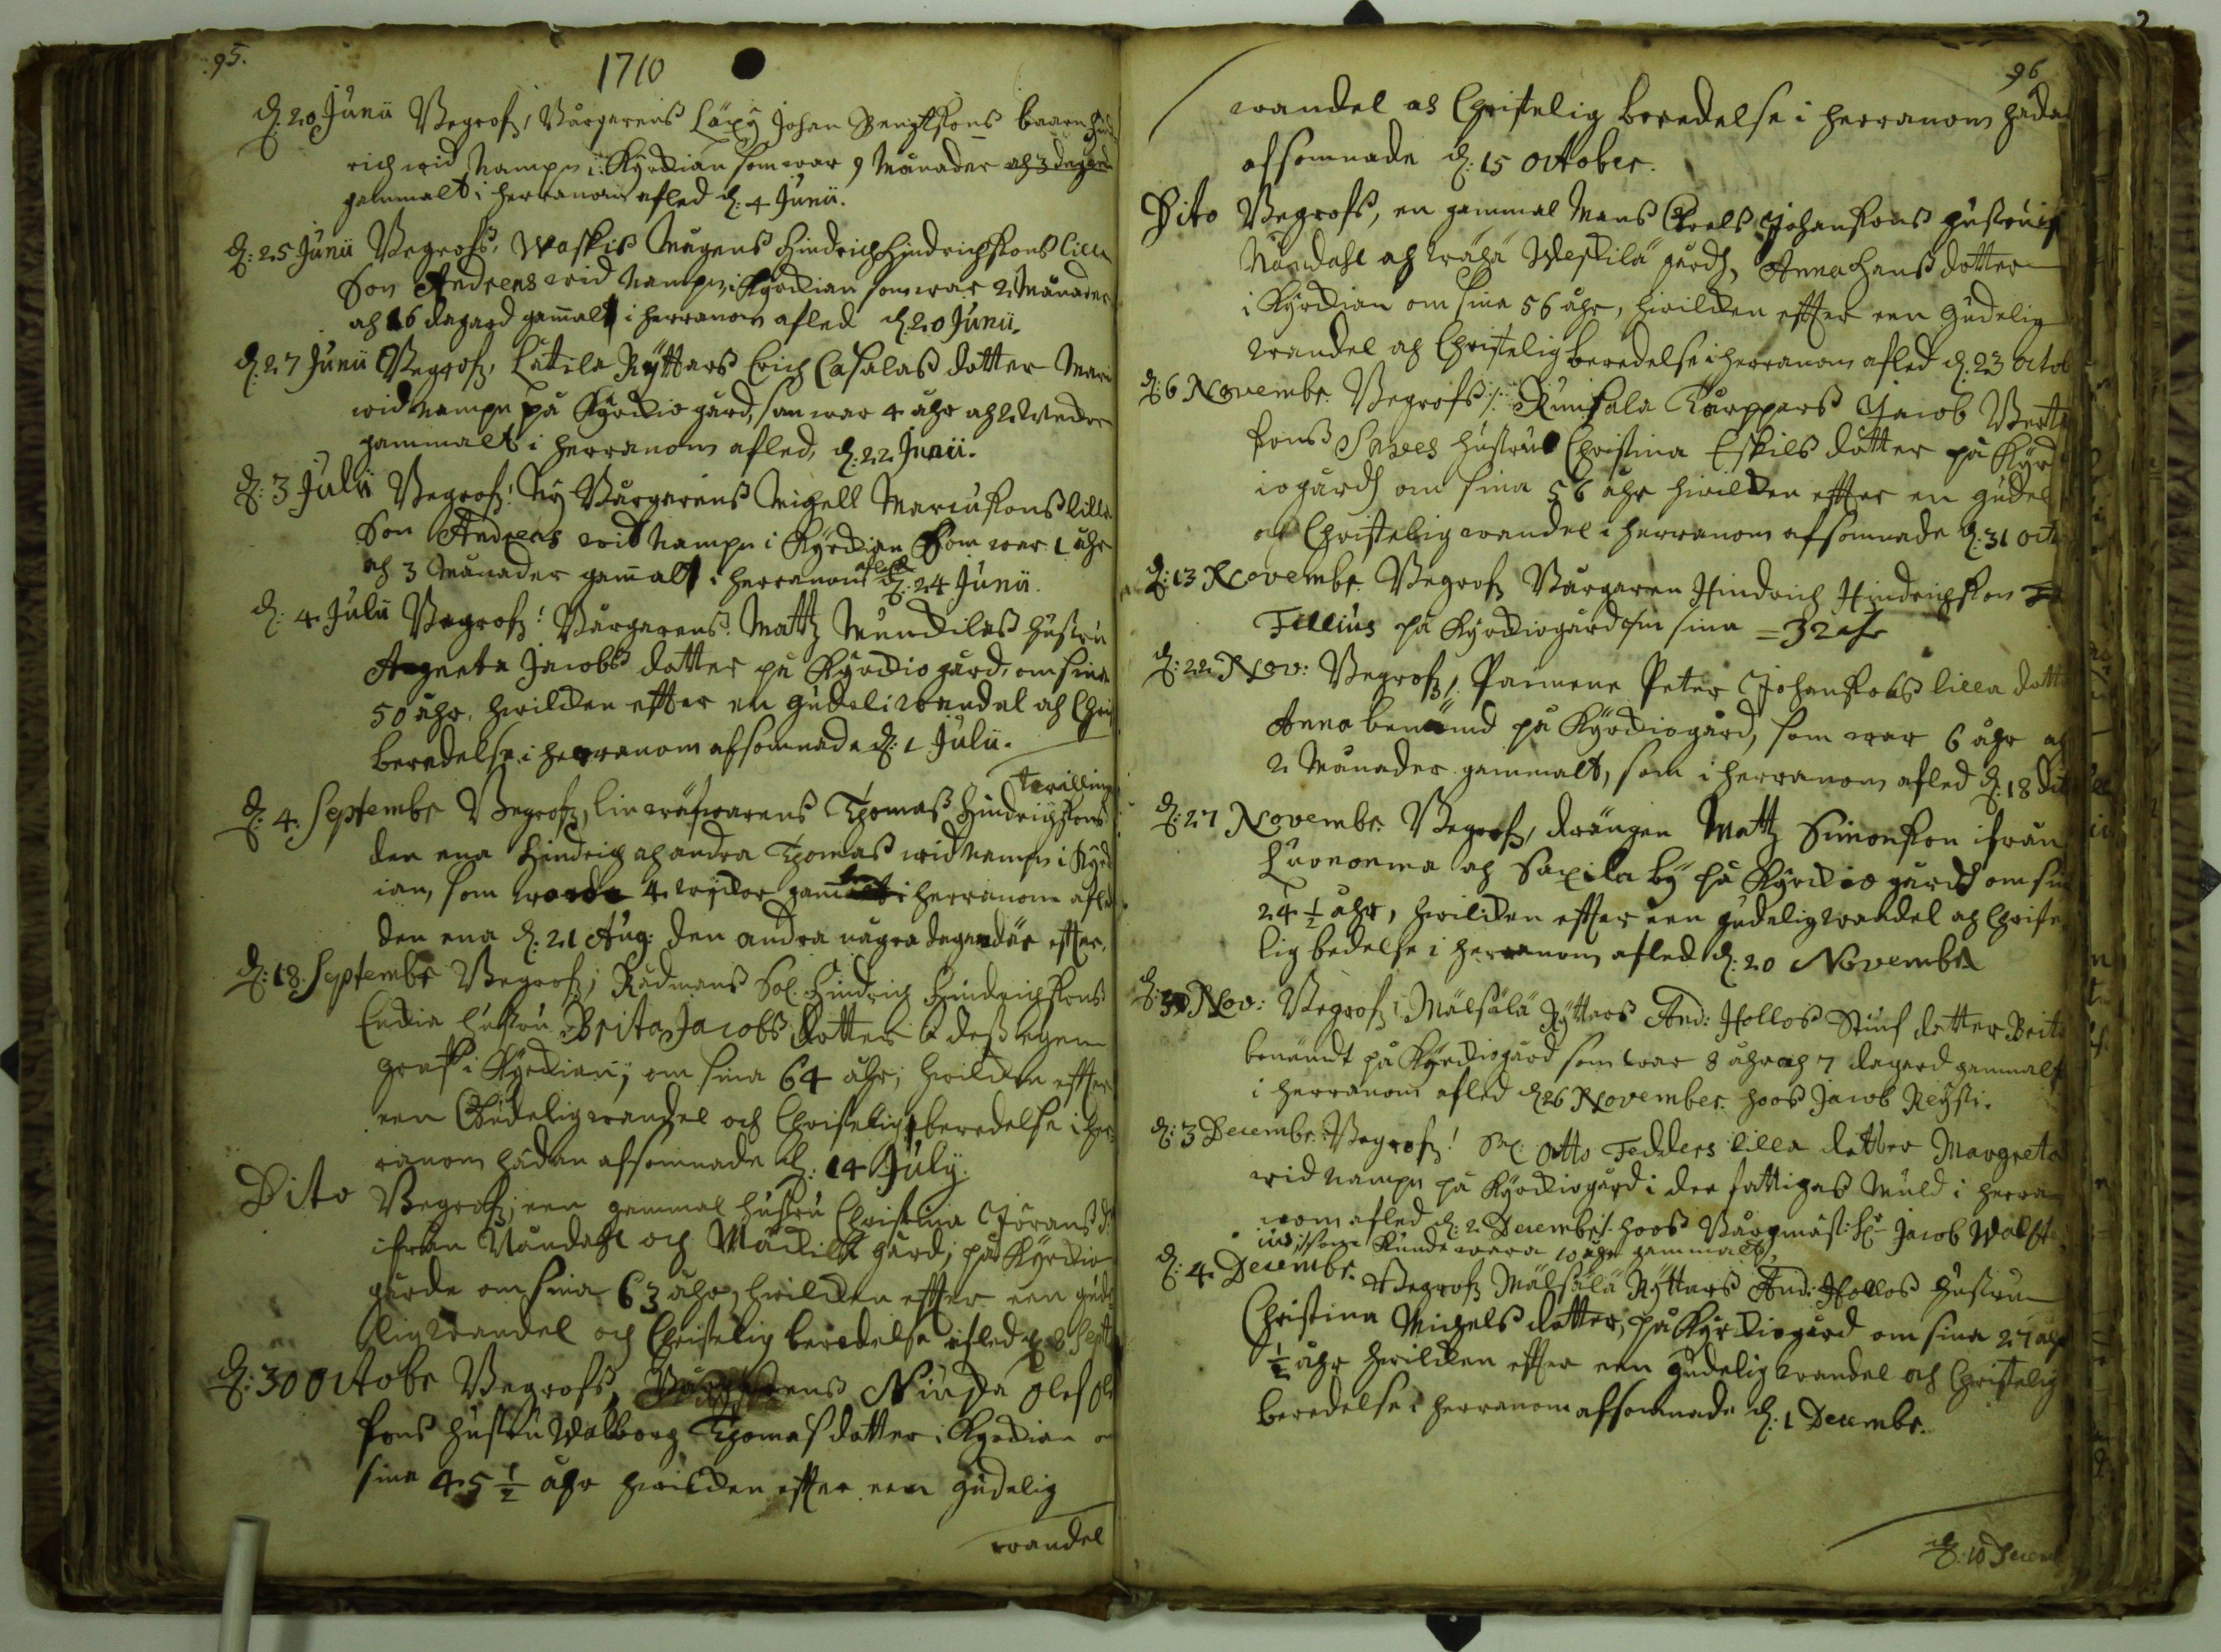 95.
1710
d: 20 Junii Begrofz, Bårgarens Läxÿ Johan Bengtssons baarn Hind
rich wid Nampn i Kÿrckian som war 9 Månader ah 3 dagar
gammalt i herranom afled d: 4 Junii.
d: 25 Junii Begrofs, Waskis Augens Hindrich Hindrichssons lilla
Son Andreas wid Nampn, i Kÿrckian som war 2 Månader
ah 16 dagard gamalt i herranom afled d 20 Junii.
d. 27 Junii Begrofz, Lätila Rÿttars Erich Casalas dotter Mari
wid Nampn på Kÿrckio gård, som war 4 åhr ah 2 Weckor
gammalt i herranom afled, d: 22 Junii.
d: 3 Julii Begrofz! Nÿ Bårgarens Michell Marcussons lilla
Son Andreas wid Nampn i Kÿrckian som war 1 åhr
ah 3 Månader gamalt i herranom afled d: 24 Junii.
d: 4. Julii Begrofz! Bårgarens Mattz Munckilas hustru
Angneta Jacobs dotter på Kÿrckio gård, om sina
50 åhr, hwilcken effter en gudeli wandel ah Chri
beredelse i herranom afsomnade d: 1 Julii.
twilling
d: 4. Septembr Begrofz, linwäfwarens Thomas Hindrichssons
den ena Hindrich ah andra Thomas wid Nampn i Kÿrck
ian, som worde 4 wÿckor gamalt i herranom afled
den ena d: 21 Aug: den andra några dagar där effter.
d: 18. Septembr Begrofz; Rådmans Sal. Hindrich Hindrichssons
Enckia hustru Brita Jacobs dotter i dess egen
graff i Kÿrckian; om sina 64 åhr; hwilcken effter
een Gudelig wandel och Christelig beredelse i her
ranom hädan afsomnade d: 14 Julÿ.
Dito Begrofz; een gammal hustru Christina Jörans d:
ifrån Nåndahl och Mäckilä gård; på Kÿrckio
gårde om sina 63 åhr, hwilcken effter een gude
lig wandel och Christelig beredelse afled d: 8 Sept
d: 30 Octobr Begrofs, Niupa Olof Ols
sons hustru Walborg Thomas dotter i Kÿrckian om
sina 45 1/2 åhr hwilcken effter een gudelig
wandel
96
wandel ah Christelig beredelse i herranom hädan
afsomnade d: 15 October.
Dito Begrofs, en gammal Mans Carls Johanssons hustru if
Nåndahl ah Wähä Weskilä gård, Anna Hans dotter
i Kÿrckian om sina 56 åhr, hwilcken effter een Gudelig
wandel ah Christelig beredelse i herranom afled d: 23 Octob
d: 6 Novembr. Begrofs /: Runsala Torppars Jacob Bertt
sons hustru Christina Eskils dotter på Kÿrck
iogård om sina 56 åhr hwilcken effter en gudel
ah Christelig wandel i herranom afsomnade d: 31 Oct
d: 13 Novembr. Begrofz Bårgaren Hindrich Hindrichsson
Fillius på Kÿrckiogård om sina = 32 åhr
d: 22 Nov: Begrofz, Paimene Peter Johanssons lilla dott
Anna benämnd på Kÿrckiogård, som war 6 åhr ah
2 Månader gammalt, som i herranom afled d: 18 dit
d: 27 Novembr. Begrofz, drängen Mattz Simonsson ifrån
Luononma ah Saxila bÿ på Kÿrckio gård om sin
24 1/2 åhr, hwilcken effter een gudelig wandel ah Christe
lig bedelse i herranom afled d: 20 Novembr
d: 30 Nov: Begrofz! Mälsälä Rÿttars And: Hollos Stiuf dotter Brita
benämdt på Kÿrckiogård som war 8 åhr ah 7 dagard gammalt
i herranom afled d 26 November hoos Jacob Reihsi.
d: 3 Decembr. Begrofz! Sal. Otto Fedders lilla dotter Margreta
wid Nampn på Kÿrckiogård i dee fattigas Muld i herra
nom afled d: 2 Decembr. hoos Bårgmäst: Hr Jacob Walst
ius; som kunde wara 10 åhr gammalt,
d: 4. Decembr. Begrofz Mälsälä Rÿttars And: Hollos hustru
Christina Michels dotter, på Kÿrckiogård om sina 27 åhr
1/2 åhr hwilcken effter een gudelig wandel och Christelig
beredelse i herranom afsomnade d: 1 Decembr.
d: 10 Decem